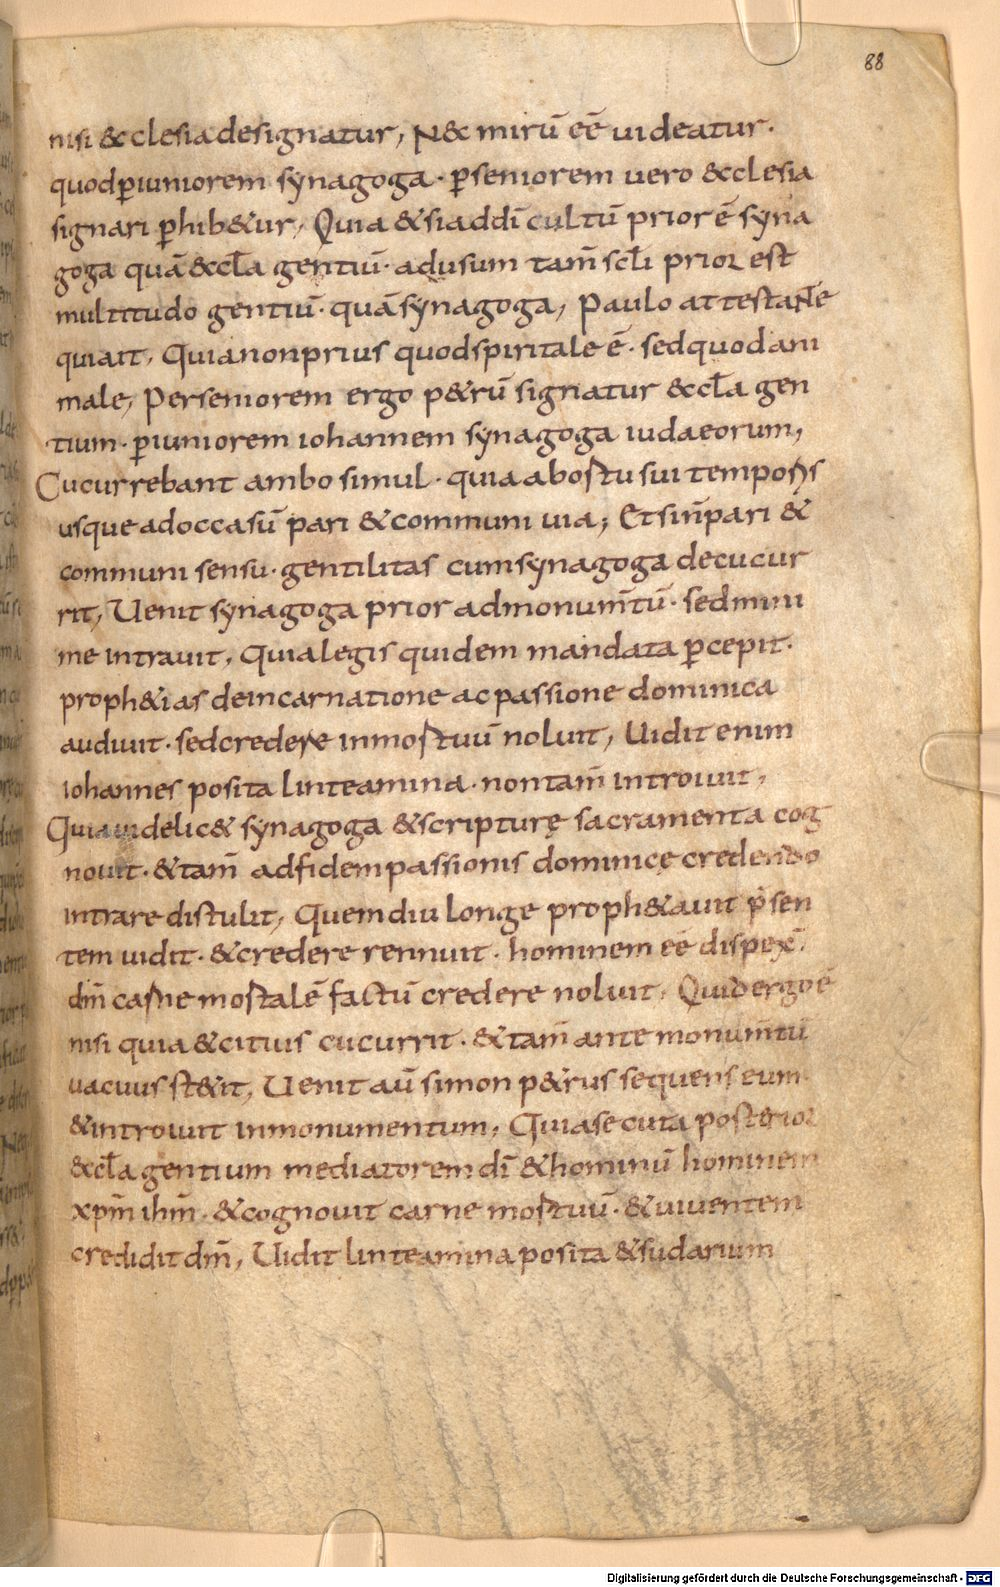 88
nisi &cclesia designatur, N&c mirū ēē uideatur.
quod ꝑiuniorem synagoga · ꝑseniorem uero &cclesia
signari ꝑhib&ur, Quia &si addī cultū prior ē syna
goga quā &ccła gentiū · adusum tam̄ scłi prior est
multitudo gentiū · quā synagoga, Paulo attestante
quiait, Quia non prius quod spiritale ē · sed quod ani
male, Perseniorem ergo p&rū signatur &ccła gen
tium · ꝑiuniorem iohannem synagoga iudaeorum,
Cucurrebant ambo simul · quia abortu sui temporis
usque ad occasū pari & communi uia, Et sin̄ pari &
communi sensu · gentilitas cum synagoga decucur
rit, Uenit synagoga prior ad monum̄tū · sed mini
me intrauit, Quia legis quidem mandata ꝑcepit ·
proph&ias de incarnatione ac passione dominica
audiuit · sed credere in mortuū noluit, Uidit enim
iohannes posita linteamina · non tam̄ introiuit,
Quia uidelic& synagoga & scripturę sacramenta cog
nouit · & tam̄ ad fidem passionis dominicę credendo
intrare distulit, Quem diu longe proph&auit p̄sen
tem uidit · & credere rennuit · hominem ēē dispex̄ ·
dm̄ carne mortalē factū credere noluit, Quid ergo ē
nisi quia & citius cucurrit · & tam̄ ante monum̄tū
uacuus st&it, Uenit aū simon p&rus sequens eum ·
& introiuit in monumentum, Quia secuta posterior
&ccła gentium mediatorem dī & hominū hominem
xpm̄ ihm̄ · & cognouit carne mortuū · & uiuentem
credidit dm̄, Uidit linteamina posita & sudarium
Digitalisierung gefördert durch die Deutsche Forschungsgemeinschaft - DFG